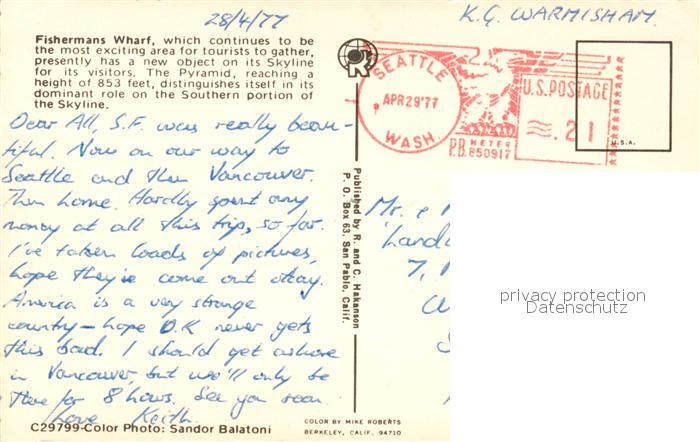 28/4/77
K.G. WARMISHAM.
Fishermans Wharf, which continues to be
the most exciting area for tourists to gather,
presently has a new object on its Skyline
for its visitors. The Pyramid, reaching a
height of 853 feet, distinguishes itself in its
dominant role on the Southern portion of
the Skyline.
Dear All, S.F. was really beau-
tiful. Now on our way to
Seattle and then Vancouver.
Then home. Hardly spent any
money at all this trip, so far.
I've taken loads of pictures,
hope they've come out okay.
America is a very strange
country - hope U.K never gets
this bad. I should get ashore
in Vancouver, but we'll only be
there for 8 hours. See you soon
Love Keith.
C29799-Color Photo: Sandor Balatoni
Published by R. and C. Hakanson
P. O. Box 63, San Pablo, Calif.
COLOR BY MIKE ROBERTS
BERKELEY, CALIF. 94710
R
SEATTLE
P APR 29 '77
WASH.
U.S. POSTAGE
.21
P.B. METER
850917
U.S.A.
Mr. &
7,
privacy protection
Datenschutz